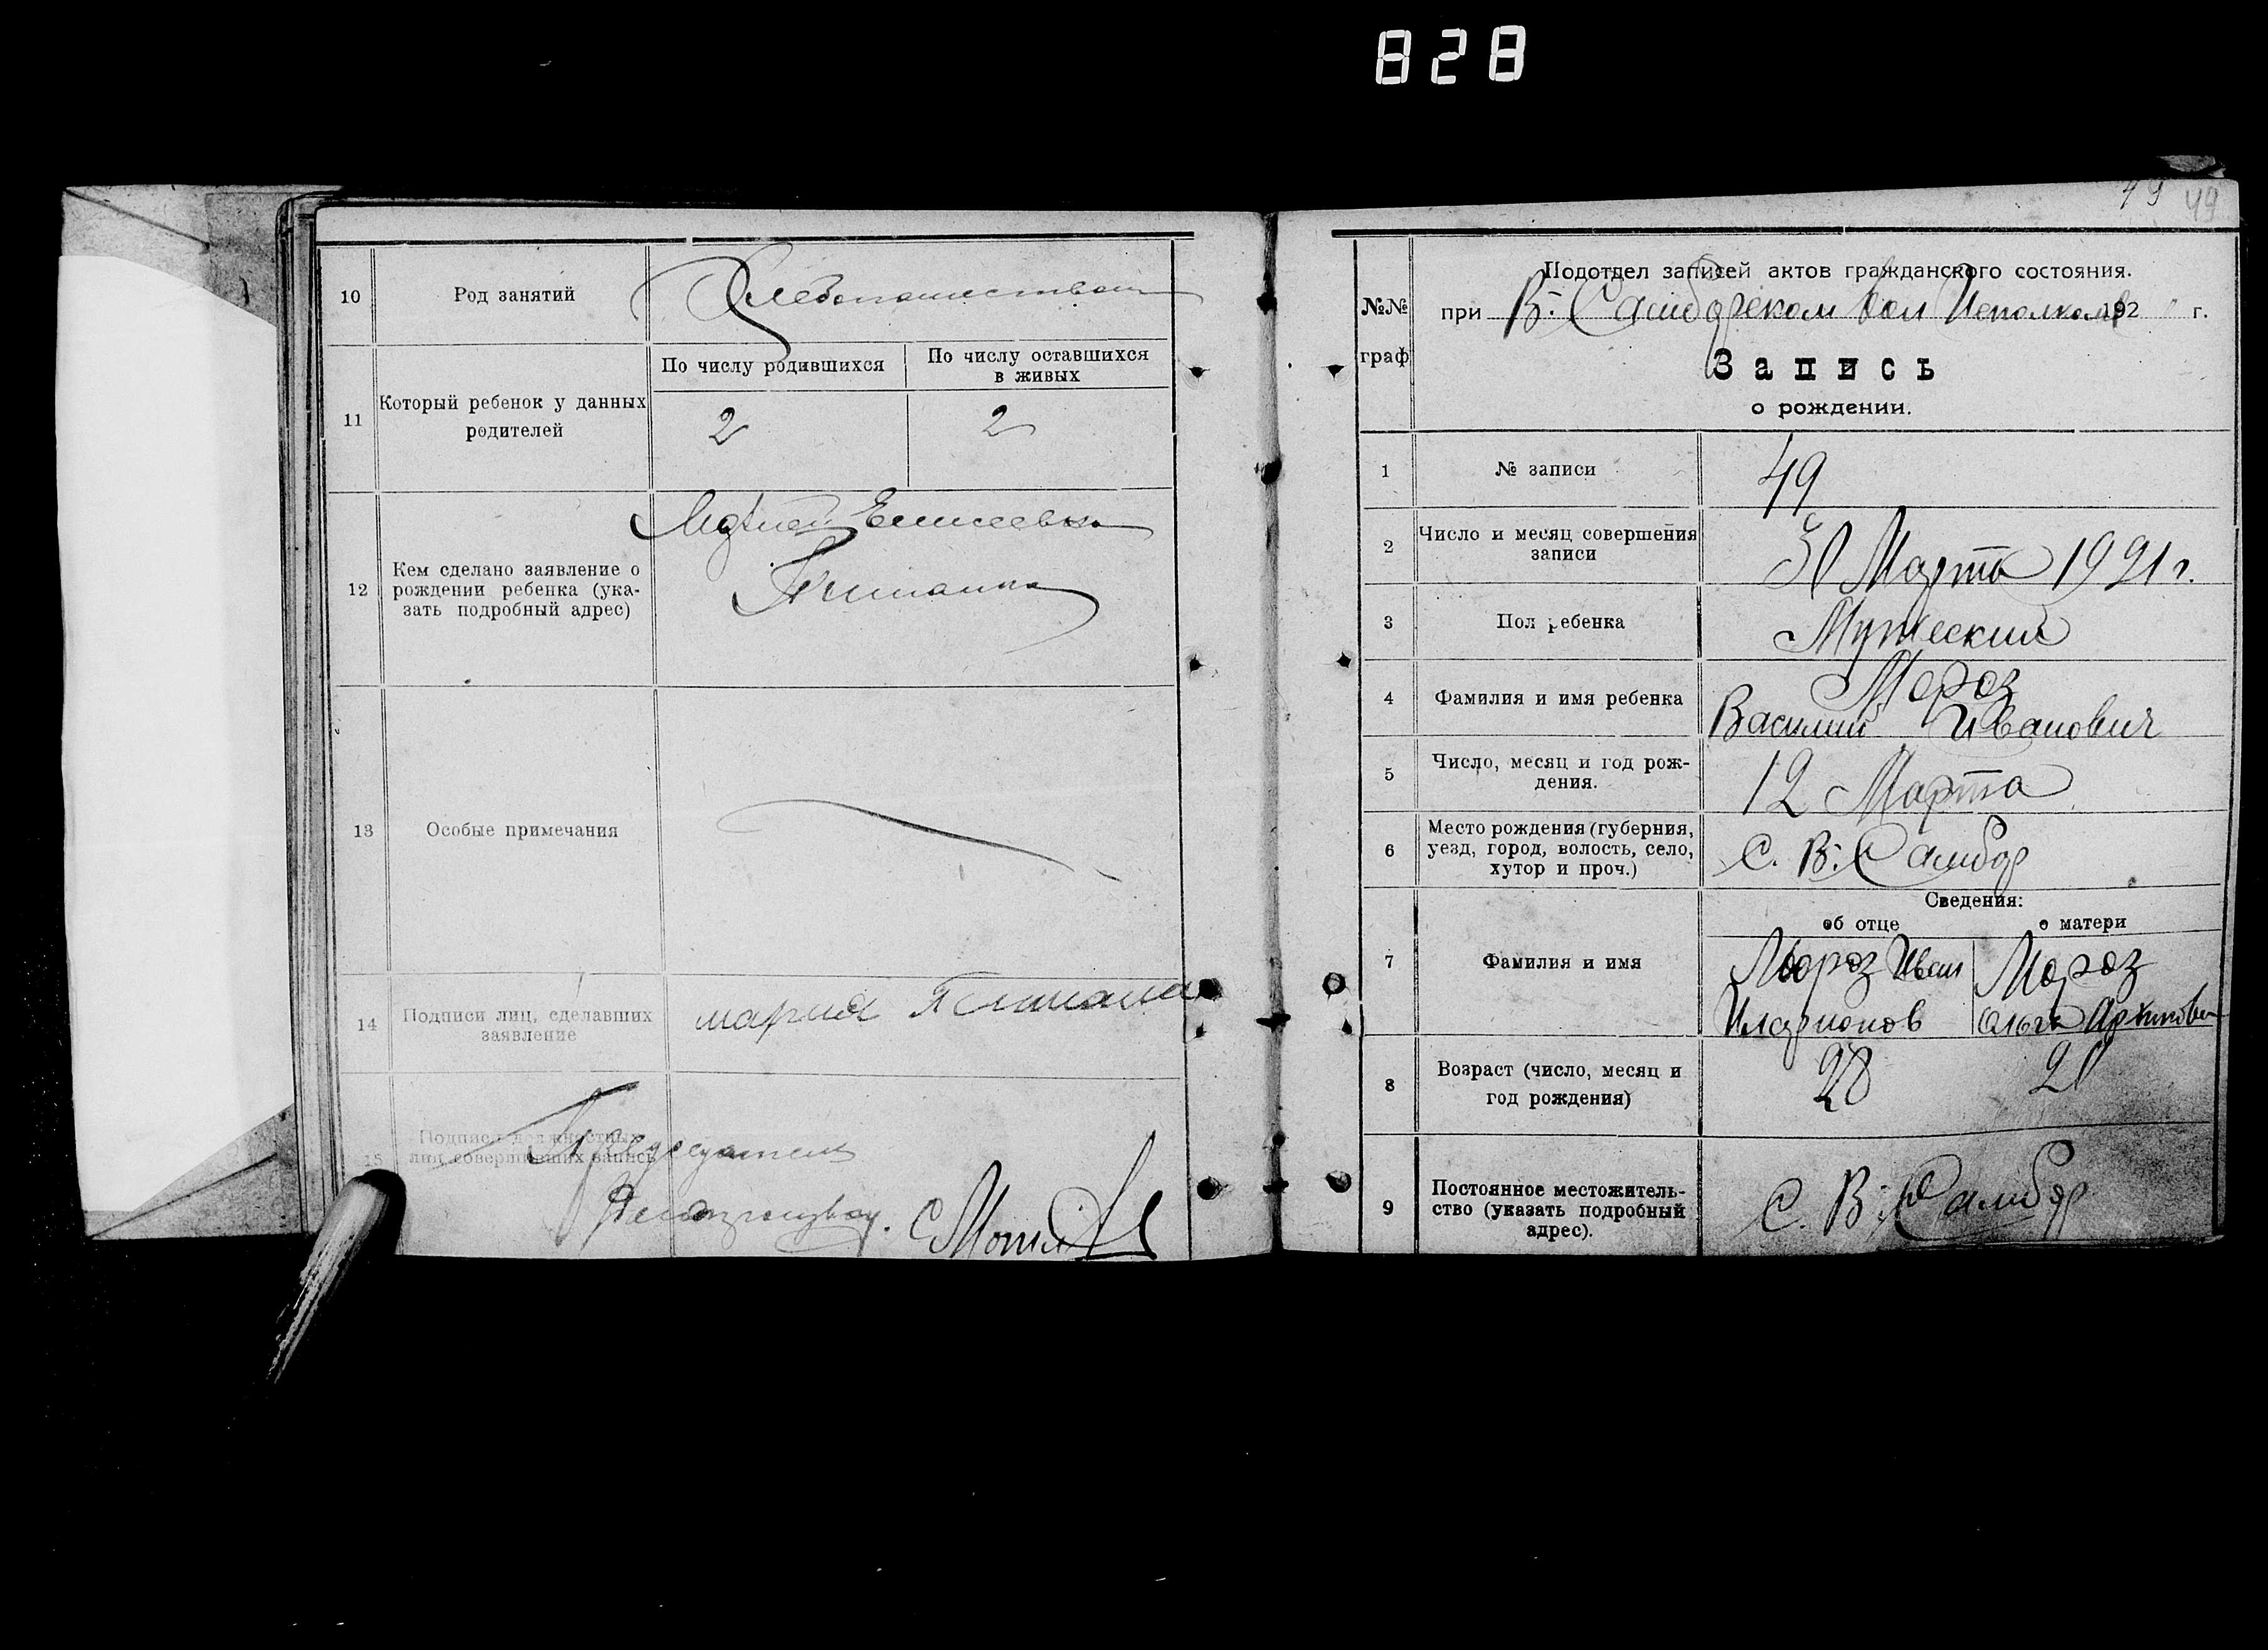 828
10 Род занятий Хлебопашеством
11 Который ребенок у данных родителей
По числу родившихся
По числу оставшихся
в живых
2 2
12 Кем сделано заявление о
рождении ребенка (ука-
зать подробный адрес)
Елисеевна
13 Особые примечания
14 Подписи лиц, сделавших
заявление
мария
15 Подписи должностных
лиц совершивших запись
Председатель
49 49
№№
граф
Подотдел записей актов гражданского состояния.
при В: Самборском Вол Исполкоме 192 г.
Запись
о рождении.
1 № записи 49
2 Число и месяц совершения
записи
30 Марта 1921 г.
3 Пол ребенка Мужеский
4 Фамилия и имя ребенка
Мороз
Василий Иванович
5 Число, месяц и год рож-
дения.
12 Марта
6 Место рождения (губерния,
уезд, город, волость, село,
хутор и проч.)
С. В: Самбор
Сведения:
об отце о матери
7 Фамилия и имя
Мороз Иван
Иларионов
Мороз
Ольга
8 Возраст (число, месяц и
год рождения)
28
9 Постоянное местожитель-
ство (указать подробный
адрес).
С. В: Самбор